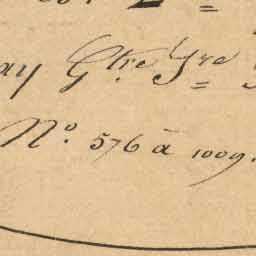 ay G.tre J.re
N.o 576 à 1009.